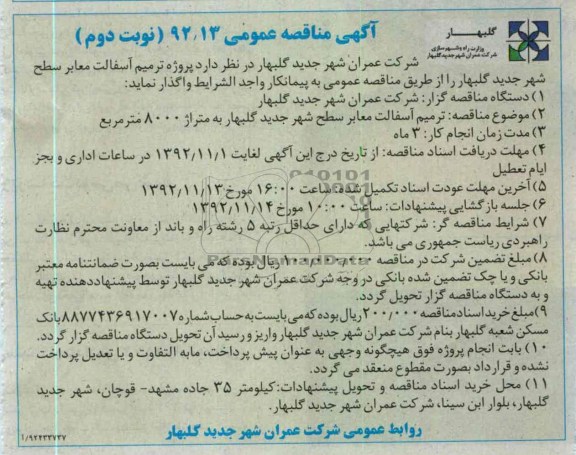 گلبهار
وزارت راه و شهرسازی
شرکت عمران شهر جدید گلبهار
آگهی مناقصه عمومی ۹۲٫۱۳ (نوبت دوم)
شرکت عمران شهر جدید گلبهار در نظر دارد پروژه ترمیم آسفالت معابر سطح
شهر جدید گلبهار را از طریق مناقصه عمومی به پیمانکار واجد الشرایط واگذار نماید:
۱) دستگاه مناقصه گزار: شرکت عمران شهر جدید گلبهار
۲) موضوع مناقصه: ترمیم آسفالت معابر سطح شهر جدید گلبهار به متراژ ۸۰۰۰ مترمربع
۳) مدت زمان انجام کار: ۳ ماه
۴) مهلت دریافت اسناد مناقصه: از تاریخ درج این آگهی لغایت ۱۳۹۲٫۱۱٫۱ در ساعات اداری و بجز
ایام تعطیل
۵) آخرین مهلت عودت اسناد تکمیل شده: ساعت ۱۶:۰۰ مورخ ۱۳۹۲٫۱۱٫۱۳
۶) جلسه بازگشایی پیشنهادات: ساعت ۱۰:۰۰ مورخ ۱۳۹۲٫۱۱٫۱۴
۷) شرایط مناقصه گر: شرکتهایی که دارای حداقل رتبه ۵ رشته راه و باند از معاونت محترم نظارت
راهبردی ریاست جمهوری می باشد.
۸) مبلغ تضمین شرکت در مناقصه ریال بوده که می بایست بصورت ضمانتنامه معتبر
بانکی و یا چک تضمین شده بانکی در وجه شرکت عمران شهر جدید گلبهار توسط پیشنهاددهنده تهیه
و به دستگاه مناقصه گزار تحویل گردد.
۹) مبلغ خرید اسناد مناقصه ۲۰۰٫۰۰۰ ریال بوده که می بایست به حساب شماره ۸۸۷۷۴۳۶۹۱۷۰۰۷ بانک
مسکن شعبه گلبهار بنام شرکت عمران شهر جدید گلبهار واریز و رسید آن تحویل دستگاه مناقصه گزار گردد.
۱۰) بابت انجام پروژه فوق هیچگونه وجهی به عنوان پیش پرداخت، مابه التفاوت و یا تعدیل پرداخت
نشده و قرارداد بصورت مقطوع منعقد می گردد.
۱۱) محل خرید اسناد مناقصه و تحویل پیشنهادات: کیلومتر ۳۵ جاده مشهد- قوچان، شهر جدید
گلبهار، بلوار ابن سینا، شرکت عمران شهر جدید گلبهار.
روابط عمومی شرکت عمران شهر جدید گلبهار
۱/۹۲۴۳۷۳۷